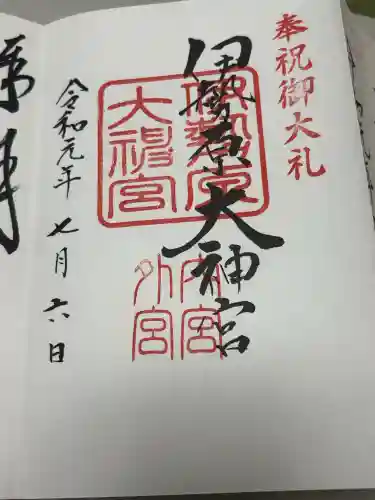 奉祝御大礼
伊勢原大神宮
伊勢原
大神宮
内宮
外宮
令和元年 七月 六日
奉拝